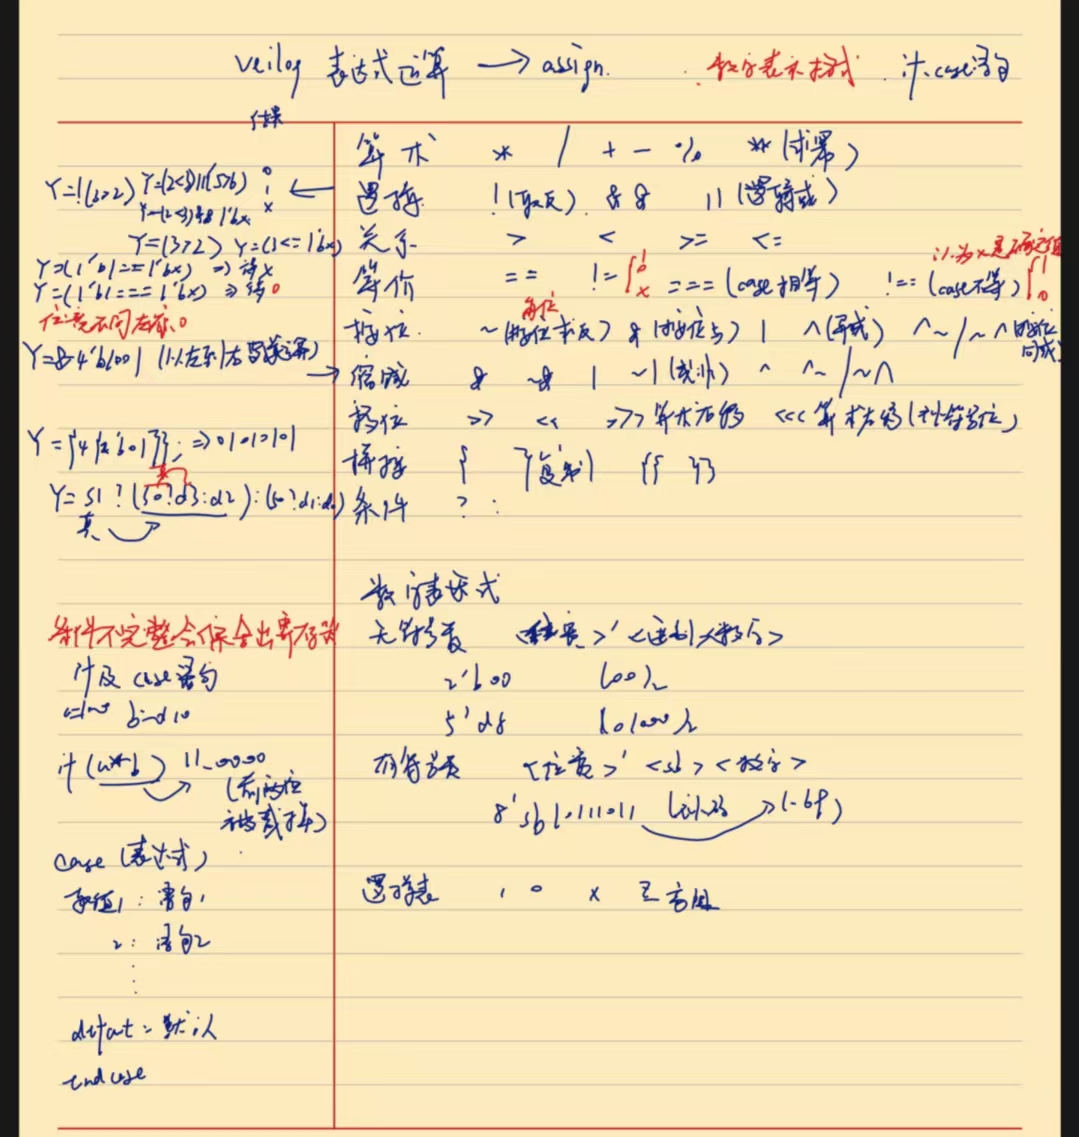 Verilog 表达式运算 → assign. 数字表示格式 if、case语句
结果
算术 * / + - % ** (求幂)
Y=!(3>2) Y=(2<3)||(5>6) 0 1 x
逻辑 !(取反) && || (逻辑或)
Y=(2<3)&&1'bx
Y=(3>2) Y=(3<=1'bx)
关系 > < >= <=
Y=(1'b1==1'bx) => 得x
Y=(1'b1===1'bx) => 得0
等价 == != {1 0 x === (case相等) !== (case不等) {1 0
位宽不同左添0
每位
按位 ~(按位求反) & (按位与) | ^(异或) ^~/~^(按位同或)
Y=&4'b1001 (从左到右
缩减 & ~& | ~| (或非) ^ ^~/~^
移位 >> << >>> 算术右移 <<< 算术左移
Y={4{2'b01}}; => 01010101
拼接 { }(复制) {{ }}
Y= S1 ? (S0?d3:d2) : (S0?d1:d0)
真
条件 ? :
数字表示式
条件不完整会综合出寄存器
无符号数 <位宽>'<进制><数字>
if及 case语句
2'b00 (00)₂
5'd8 (01000)₂
if (a*b) 11_0000
(前两位
被截掉)
有符号数 <位宽>'<sb><数字>
8'sb10111011 (补码 → (-69)
case (表达式)
逻辑表 1 0 x 三 高阻
值1: 语句1
2: 语句2
default: 默认
endcase